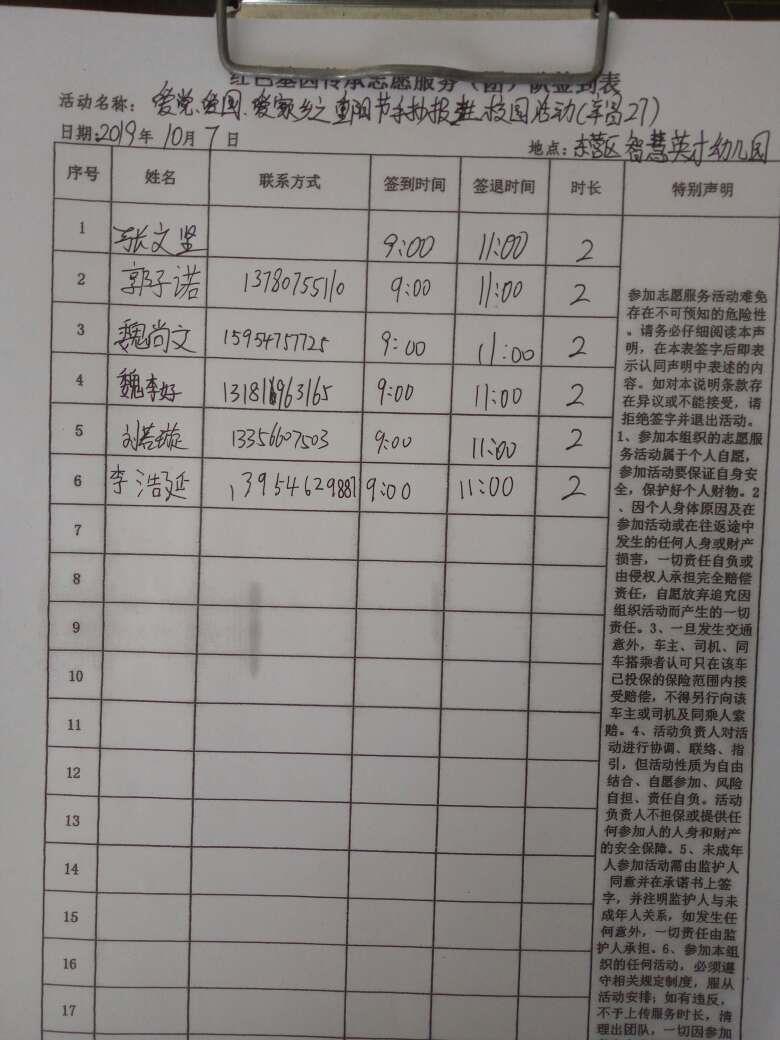 红色基因传承志愿服务（团）队签到表
活动名称：爱党、爱国、爱家乡之重阳节手抄报进校园活动(军茵27)
日期:2019年10月7日
地点：东营区智慧英才幼儿园
序号 姓名 联系方式 签到时间 签退时间 时长 特别声明
1 张文坚 9:00 11:00 2
2 郭子诺 13780755110 9:00 11:00 2
3 魏尚文 15954757725 9:00 11:00 2
4 魏李好 13181963165 9:00 11:00 2
5 刘若璇 13356607503 9:00 11:00 2
6 李浩延 13954629887 9:00 11:00 2
7
8
9
10
11
12
13
14
15
16
17
参加志愿服务活动难免
存在不可预知的危险性
。请务必仔细阅读本声
明，在本表签字后即表
示认同声明中表述的内
容。如对本说明条款存
在异议或不能接受，请
拒绝签字并退出活动。
1、参加本组织的志愿服
务活动属于个人自愿，
参加活动要保证自身安
全，保护好个人财物。2
、因个人身体原因及在
参加活动或在往返途中
发生的任何人身或财产
损害，一切责任自负或
由侵权人承担完全赔偿
责任，自愿放弃追究因
组织活动而产生的一切
责任。3、一旦发生交通
意外，车主、司机、同
车搭乘者认可只在该车
已投保的保险范围内接
受赔偿，不得另行向该
车主或司机及同乘人索
赔。4、活动负责人对活
动进行协调、联络、指
引，但活动性质为自由
结合、自愿参加、风险
自担、责任自负。活动
负责人不担保或提供任
何参加人的人身和财产
的安全保障。5、未成年
人参加活动需由监护人
同意并在承诺书上签
字，并注明监护人与未
成年人关系，如发生任
何意外，一切责任由监
护人承担。6、参加本组
织的任何活动，必须遵
守相关规定制度，服从
活动安排；如有违反，
不予上传服务时长，清
理出团队，一切因参加